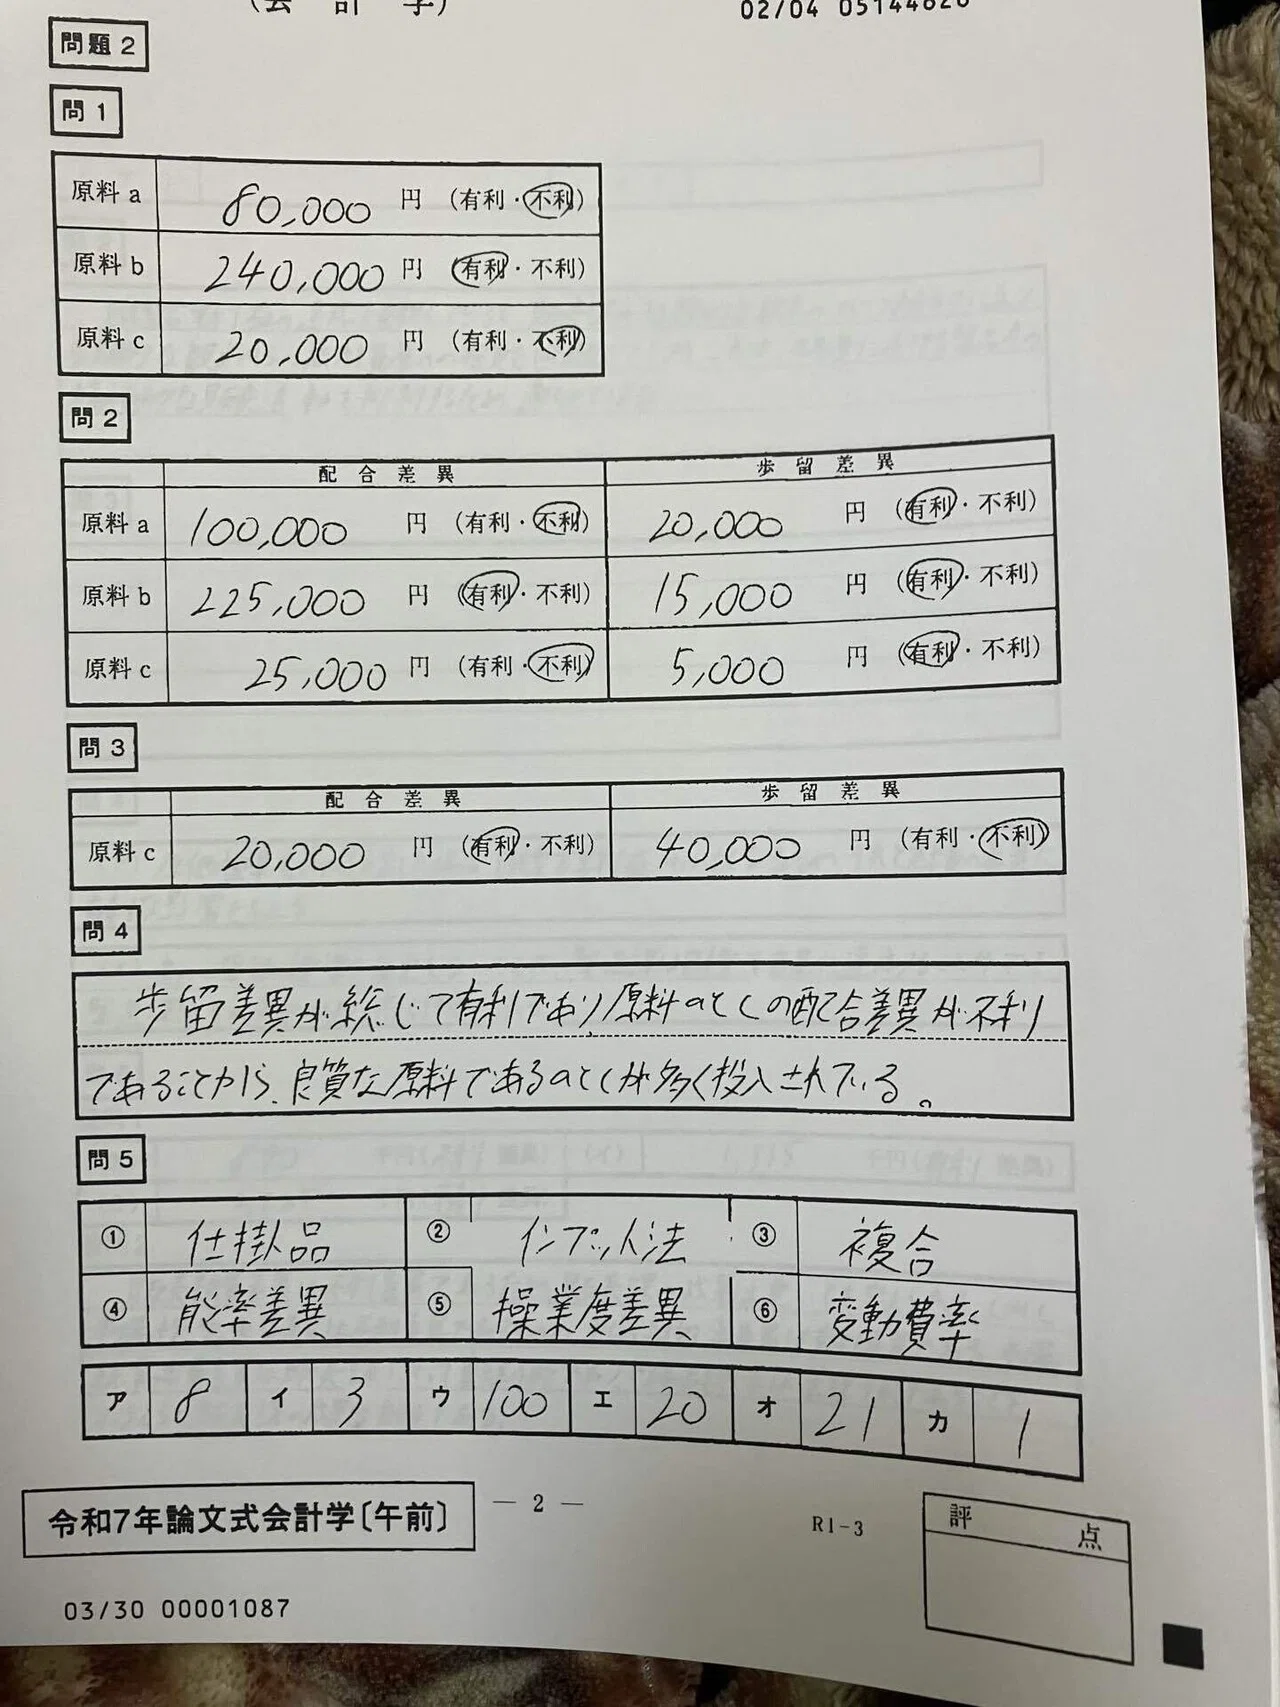 (会 計 学)
02/04 05144826
問題2
問1
原料a 80,000 円 (有利・不利)
原料b 240,000 円 (有利・不利)
原料c 20,000 円 (有利・不利)
問2
配合差異 歩留差異
原料a 100,000 円 (有利・不利) 20,000 円 (有利・不利)
原料b 225,000 円 (有利・不利) 15,000 円 (有利・不利)
原料c 25,000 円 (有利・不利) 5,000 円 (有利・不利)
問3
配合差異 歩留差異
原料c 20,000 円 (有利・不利) 40,000 円 (有利・不利)
問4
歩留差異が総じて有利であり原料aとcの配合差異が不利
であることから、良質な原料であるaとcが多く投入されている。
問5
① 仕掛品 ② インプット法 ③ 複合
④ 能率差異 ⑤ 操業度差異 ⑥ 変動費率
ア 8 イ 3 ウ 100 エ 20 オ 21 カ 1
令和7年論文式会計学〔午前〕
— 2 —
R1-3
評点
03/30 00001087